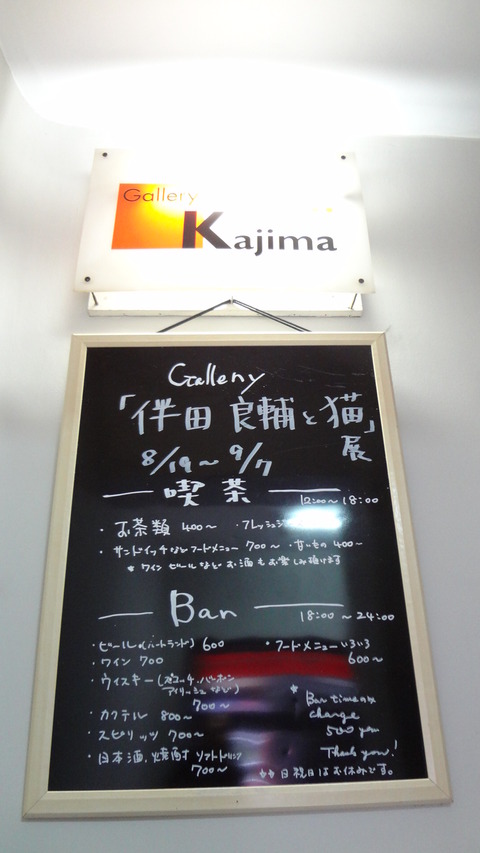 Gallery
Kajima
Gallery
「伴田良輔と猫」
展
8/19〜9/7
喫茶
12:00〜18:00
・お茶類 400〜 ・フレッシュジ
・サンドイッチなどフードメニュー 700〜 ・甘いもの 400〜
* ワイン ビールなど お酒もお楽しみ頂けます
Bar
18:00〜24:00
・ビール(ハートランド) 600
* フードメニューいろいろ
600〜
・ワイン 700
・ウィスキー(スコッチ.バーボン
アイリッシュなど)
700〜
・カクテル 800〜
・スピリッツ 700〜
・日本酒.焼酎 ソフトドリンク
700〜
* Bar time
charge
500 yen
Thank you!
** 日祝日はお休みです。